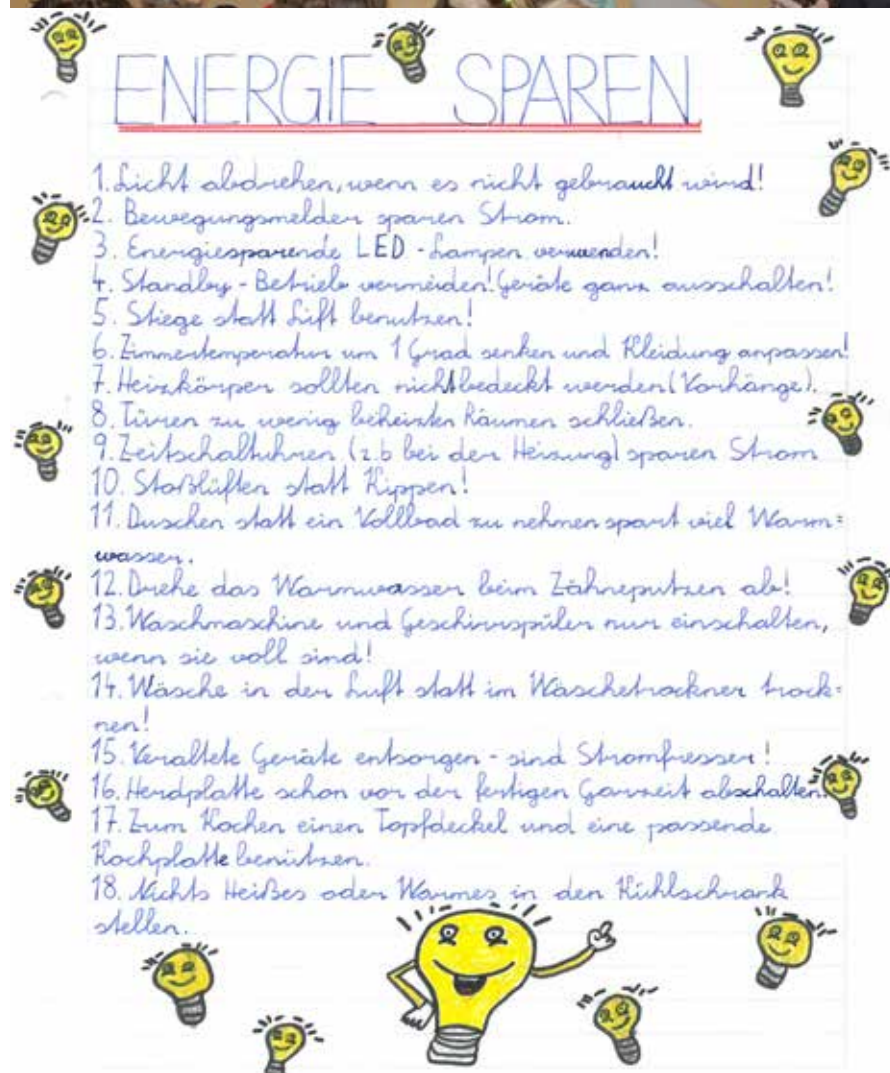 ENERGIE SPAREN
1. Licht abdrehen, wenn es nicht gebraucht wird!
2. Bewegungsmelder sparen Strom.
3. Energiesparende LED - Lampen verwenden!
4. Standby - Betrieb vermeiden! Geräte ganz ausschalten!
5. Stiege statt Lift benutzen!
6. Zimmertemperatur um 1 Grad senken und Kleidung anpassen!
7. Heizkörper sollten nicht bedeckt werden (Vorhänge).
8. Türen zu wenig beheizten Räumen schließen.
9. Zeitschaltuhren (z.b bei der Heizung) sparen Strom
10. Stoßlüften statt Kippen!
11. Duschen statt ein Vollbad zu nehmen spart viel Warm=
wasser.
12. Drehe das Warmwasser beim Zähneputzen ab!
13. Waschmaschine und Geschirrspüler nur einschalten,
wenn sie voll sind!
14. Wäsche in der Luft statt im Wäschetrockner trock=
nen!
15. Veraltete Geräte entsorgen - sind Stromfresser!
16. Herdplatte schon vor der fertigen Garzeit abschalten.
17. Zum Kochen einen Topfdeckel und eine passende
Kochplatte benützen.
18. Nichts Heißes oder Warmes in den Kühlschrank
stellen.